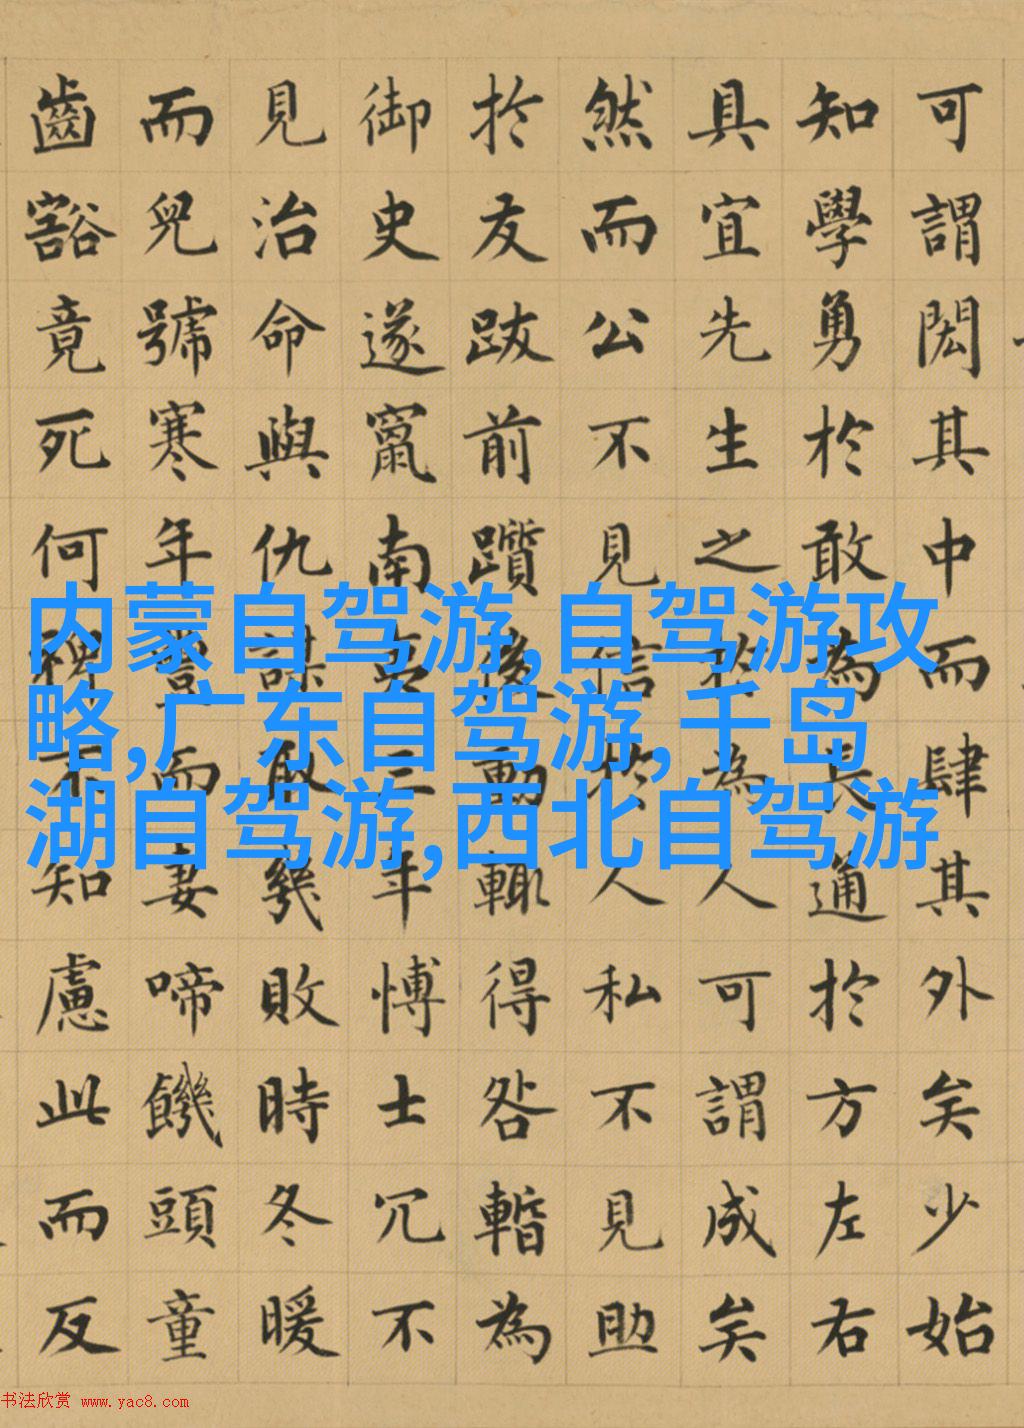 可謂閎其中而肆其外矣少始
知學勇於敢為長通於方左右
具宜先生之於為人可謂成矣
然而公不見信於人私不見助
於友跋前躓後動輒得咎暫為
御史遂竄南夷三年愽士冗不
見治命與仇謀取幾敗時冬暖
而兒號寒年豐而妻啼饑頭童
齒豁竟死何裨不知慮此而反
内蒙自驾游,自驾游攻
略,广东自驾游,千岛
湖自驾游,西北自驾游
书法欣赏 www.yac8.com